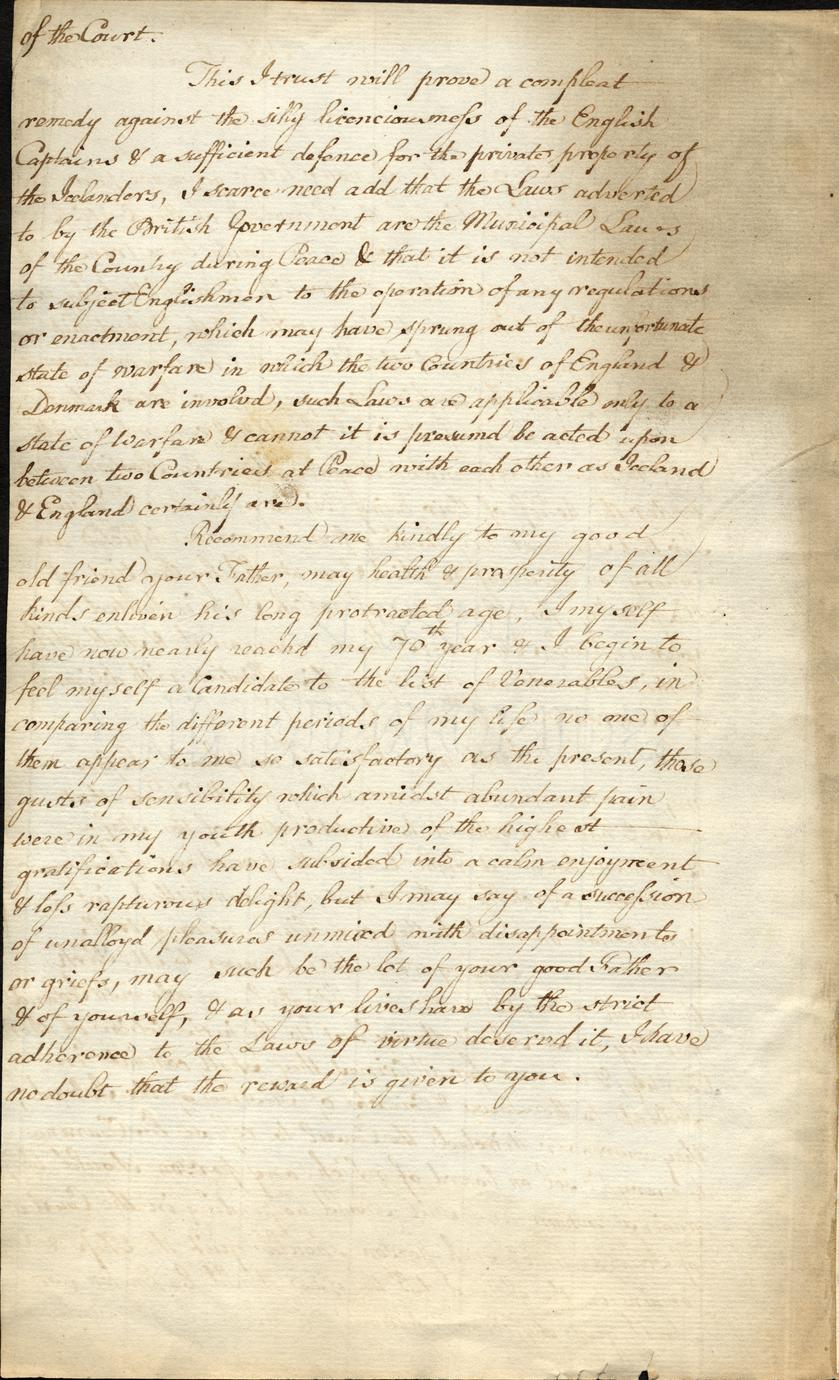 of the Court.
This I trust will prove a compleat
remedy against the silly licenciousness of the English
Captains & a sufficient defence for the private property of
the Icelanders, I scarce need add that the Laws adverted
to by the British Government are the Municipal Laws
of the Country during Peace & that it is not intended
to subject Englishmen to the operation of any regulations
or enactment, which may have sprung out of the unfortunate
state of warfare in which the two Countries of England &
Denmark are involvd, such Laws are applicable only to a
state of Warfare & cannot it is presumd be acted upon
between two Countries at Peace with each other as Iceland
& England certainly are.
Recommend me kindly to my good
old friend your Father, may health & prosperity of all
kinds enliven his long protracted age, I myself
have now nearly reachd my 70th year & I begin to
feel myself a Candidate to the list of Venerables, in
comparing the different periods of my life no one of
them appear to me so satisfactory as the present, those
gusts of sensibility which amidst abundant pain
were in my youth productive of the highest
gratifications have subsided into a calm enjoyment
& less rapturous delight, but I may say of a succession
of unalloyd pleasures unmixed with disappointments
or griefs, may such be the lot of your good Father
& of yourself, & as your lives have by the strict
adherence to the Laws of virtue deservd it, I have
no doubt that the reward is given to you.